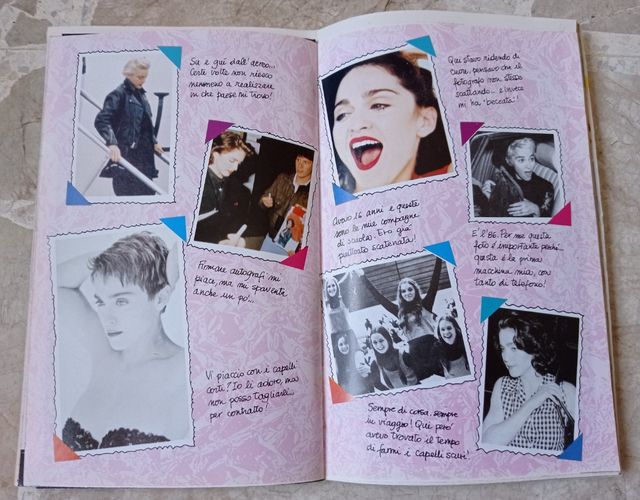 Su e giù dall'aereo...
Certe volte non riesco
nemmeno a realizzare
in che paese mi trovo!
Firmare autografi mi
piace, ma mi spaventa
anche un po'...
Vi piaccio con i capelli
corti? Io li adoro, ma
non posso tagliarli...
per contratto!
Qui stavo ridendo di
cuore, pensavo che il
fotografo non stesse
scattando... e invece
mi ha "beccata"!
Avevo 16 anni e queste
sono le mie compagne
di scuola. Ero già
piuttosto scatenata!
E' l'86. Per me questa
foto è importante perché
questa è la prima
macchina mia, con
tanto di telefono!
Sempre di corsa, sempre
in viaggio! Qui però
avevo trovato il tempo
di farmi i capelli scuri!